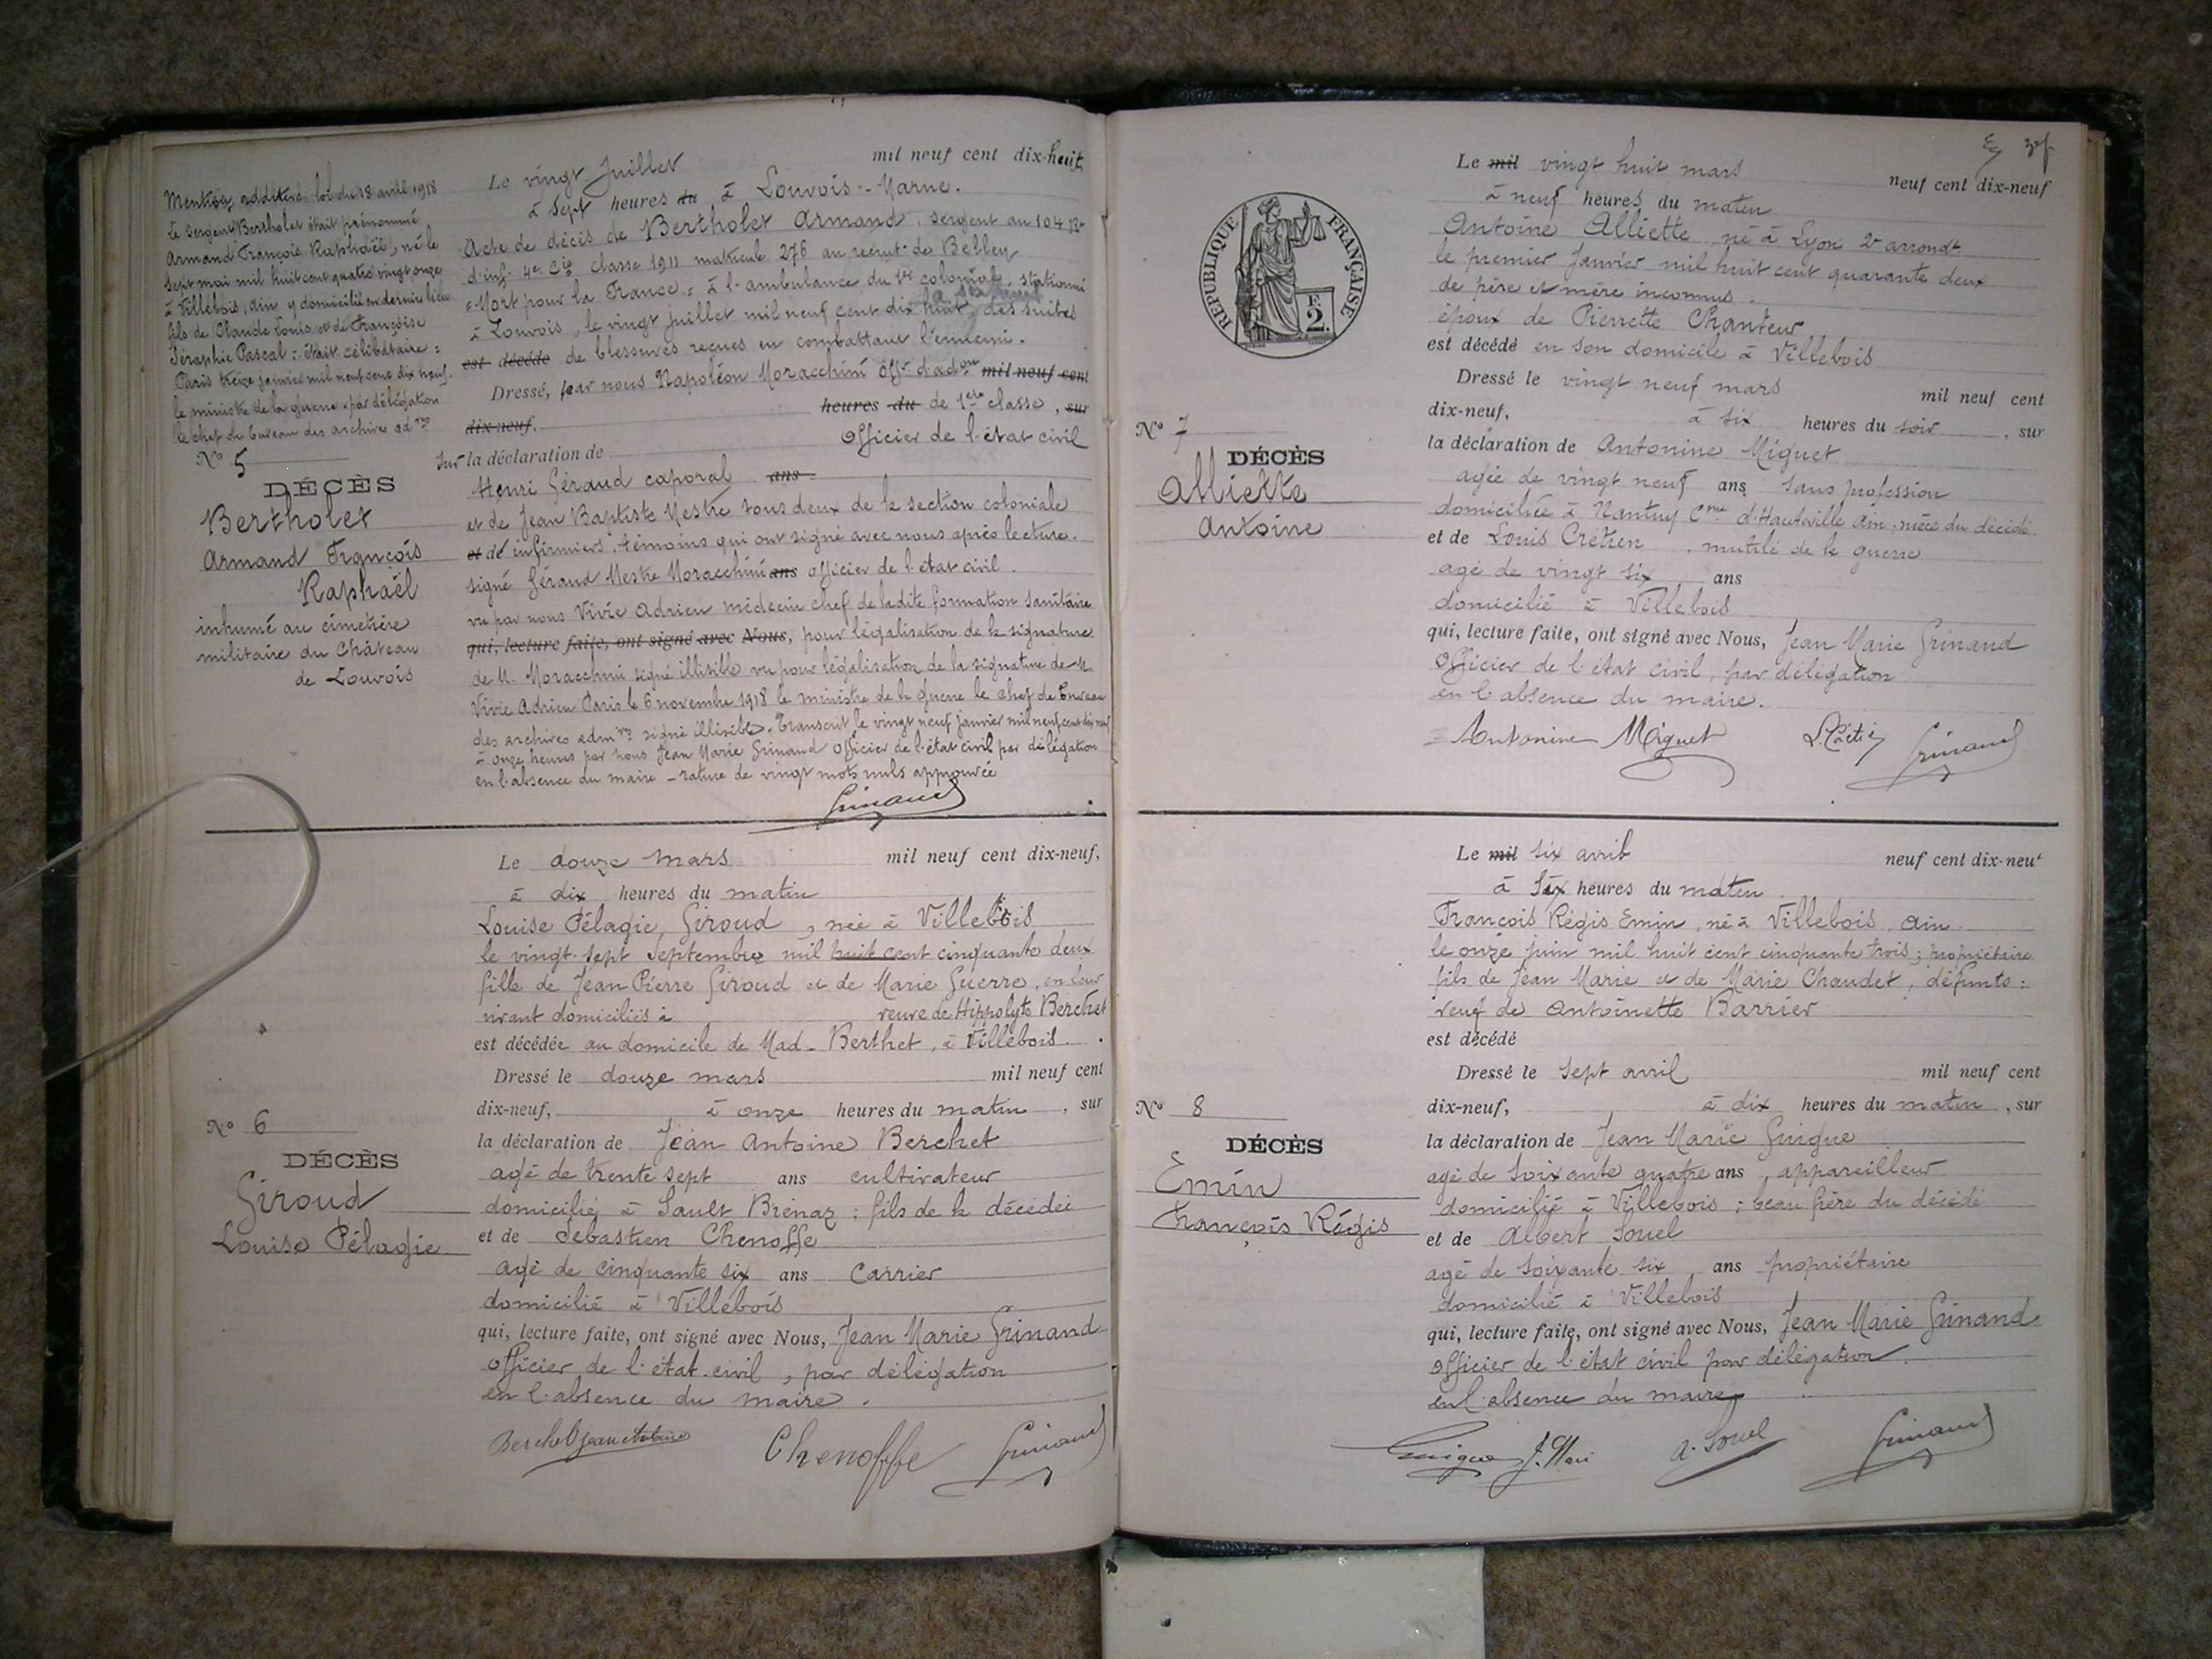 Mention additive loi du 18 avril 1918
Le sergent Bertholet était prénommé
Armand François Raphaël, né le
sept mai mil huit cent quatre vingt onze
à Villebois, ain y domicilié en dernier lieu
fils de Claude Louis et de Françoise
Séraphie Pascal : était célibataire :
Paris treize janvier mil neuf cent dix neuf.
le ministre de la guerre par délégation
le chef du bureau des archives adves
No 5
DÉCÈS
Bertholet
Armand François
Raphaël
inhumé au cimetière
militaire du Château
de Louvois
Le vingt Juillet mil neuf cent dix-huit
à sept heures du à Louvois - Marne.
Acte de décès de Bertholet Armand, sergent au 104 Rt
d'inf. 4e Cie classe 1911 matricule 276 au recrut. de Belley
= Mort pour la France = à l'ambulance du 1er colonial, stationnée
à Louvois, le vingt juillet mil neuf cent dix huit, des suites
est décédé de blessures reçues en combattant l'ennemi.
Dressé, par nous Napoléon Moracchini Offr d'adon mil neuf cent
dix-neuf, heures du de 1ère classe, sur
Officier de l'état civil
sur la déclaration de
Henri Géraud caporal ans
et de Jean Baptiste Mestre tous deux de la section coloniale
et de infirmiers, témoins qui ont signé avec nous après lecture.
signé Géraud Mestre Moracchini ans officier de l'état civil.
vu par nous Vivie Adrien médecin chef de ladite formation sanitaire
qui, lecture faite, ont signé avec Nous, pour légalisation de la signature
de M. Moracchini signé illisible vu pour légalisation de la signature de M.
Vivie Adrien Paris le 6 novembre 1918 le ministre de la guerre le chef de bureau
des archives admves signé illisible. Transcrit le vingt neuf janvier mil neuf cent dix neuf
à onze heures par nous Jean Marie Grinand Officier de l'état civil par délégation
en l'absence du maire - rature de vingt mots nuls approuvée
Grinand
No 6
DÉCÈS
Giroud
Louise Pélagie
Le douze mars mil neuf cent dix-neuf,
à dix heures du matin
Louise Pélagie Giroud, née à Villebois
le vingt-sept Septembre mil huit cent cinquante deux
fille de Jean Pierre Giroud et de Marie Guerre, en leur
vivant domiciliés à veuve de Hippolyte Berchet
est décédée au domicile de Mad. Berthet, à Villebois.
Dressé le douze mars mil neuf cent
dix-neuf, à onze heures du matin, sur
la déclaration de Jean Antoine Berchet
agé de trente sept ans cultivateur
domicilié à Sault Brénaz ; fils de la décédée
et de Sébastien Chenoffe
agé de cinquante six ans Carrier
domicilié à Villebois
qui, lecture faite, ont signé avec Nous, Jean Marie Grinand
Officier de l'état civil, par délégation
en l'absence du maire.
Berchet jean antoine Chenoffe Grinand
RÉPUBLIQUE FRANÇAISE
F.
2.
No 7
DÉCÈS
Alliette
Antoine
Le mil vingt huit mars neuf cent dix-neuf
à neuf heures du matin
Antoine Alliette, né à Lyon 2e arrondt
le premier Janvier mil huit cent quarante deux
de père et mère inconnus.
époux de Pierrette Chanteur
est décédé en son domicile à Villebois
Dressé le vingt neuf mars mil neuf cent
dix-neuf, à six heures du soir, sur
la déclaration de Antonine Miguet
agée de vingt neuf ans, sans profession
domiciliée à Nantuy Cne d'Hauteville Ain, nièce du décédé
et de Louis Crétien, mutilé de la guerre
agé de vingt six ans
domicilié à Villebois
qui, lecture faite, ont signé avec Nous, Jean Marie Grinand
Officier de l'état civil, par délégation
en l'absence du maire.
Antonine Miguet Grinand
No 8
DÉCÈS
Emin
François Régis
Le mil six avril neuf cent dix-neuf
à six heures du matin
François Régis Emin, né à Villebois, Ain
le onze juin mil huit cent cinquante trois ; propriétaire
fils de Jean Marie et de Marie Chaudet, défunts :
veuf de Antoinette Barrier
est décédé
Dressé le sept avril mil neuf cent
dix-neuf, à dix heures du matin, sur
la déclaration de Jean Marie Guigue
agé de soixante quatre ans, appareilleur
domicilié à Villebois ; beau frère du décédé
et de Albert Souel
agé de soixante six ans propriétaire
domicilié à Villebois
qui, lecture faite, ont signé avec Nous, Jean Marie Grinand
Officier de l'état civil par délégation
en l'absence du maire
Guigue J. Mari A. Souel Grinand